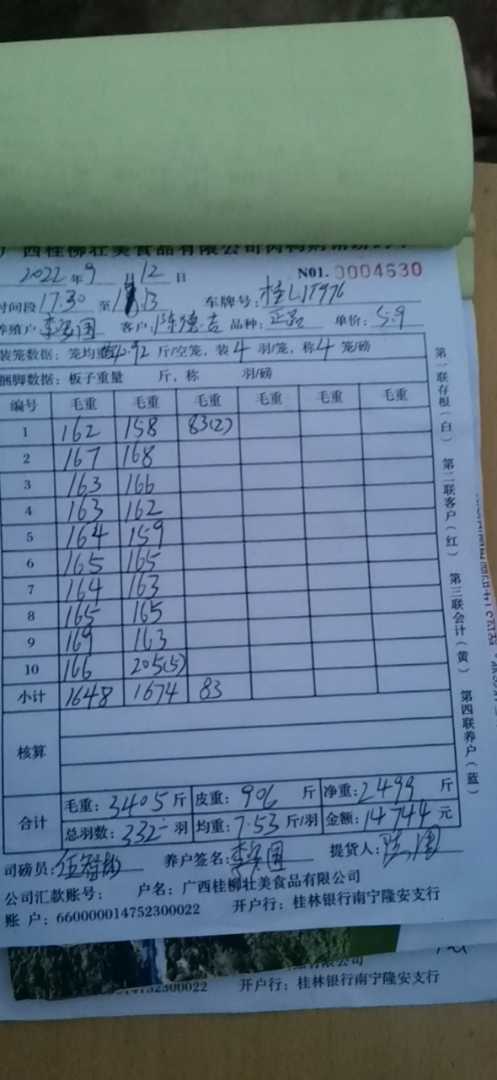 西桂柳壮美食品有限公司
2022 年 9 月 12 日 N01. 0004630
时间段 17:30 至 车牌号: 桂L
养殖户 李 国 客户: 陈德吉 品种: 正品 单价: 5.9
装笼数据: 笼均重 斤/空笼, 装 4 羽/笼, 称 4 笼/磅
捆脚数据: 板子重量 斤, 称 羽/磅
编号 毛重 毛重 毛重 毛重 毛重 毛重
1 162 158 83(2)
2 167 168
3 163 166
4 163 162
5 164 159
6 165 165
7 164 163
8 165 165
9 169 163
10 166 205(5)
小计 1648 1674 83
核算
合计 毛重: 3405 斤 皮重: 906 斤 净重: 2499 斤
总羽数: 332 羽 均重: 7.53 斤/羽 金额: 14744 元
司磅员: 养户签名: 李 国 提货人:
公司汇款账号: 户名: 广西桂柳壮美食品有限公司
账 户: 660000014752300022 开户行: 桂林银行南宁隆安支行
第一联存根(白) 第二联客户(红) 第三联会计(黄) 第四联养户(蓝)
有限公司
14752300022 开户行: 桂林银行南宁隆安支行